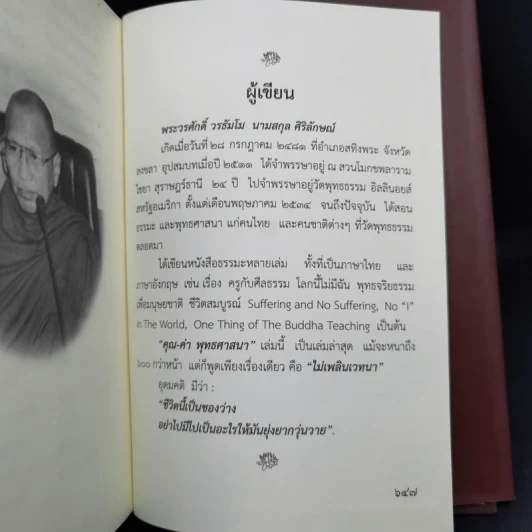 ผู้เขียน
พระวรศักดิ์ วรธมฺโม นามสกุล ศิริลักษณ์
เกิดเมื่อวันที่ ๒๘ กรกฎาคม ๒๔๘๑ ที่อำเภอสทิงพระ จังหวัด
สงขลา อุปสมบทเมื่อปี ๒๕๑๑ ได้จำพรรษาอยู่ ณ สวนโมกขพลาราม
ไชยา สุราษฎร์ธานี ๒๔ ปี ไปจำพรรษาอยู่วัดพุทธธรรม อิลลินอยส์
สหรัฐอเมริกา ตั้งแต่เดือนพฤษภาคม ๒๕๓๔ จนถึงปัจจุบัน ได้สอน
ธรรมะ และพุทธศาสนา แก่คนไทย และคนชาติต่างๆ ที่วัดพุทธธรรม
ตลอดมา
ได้เขียนหนังสือธรรมะหลายเล่ม ทั้งที่เป็นภาษาไทย และ
ภาษาอังกฤษ เช่น เรื่อง ครูกับศีลธรรม โลกนี้ไม่มีฉัน พุทธจริยธรรม
เพื่อมนุษยชาติ ชีวิตสมบูรณ์ Suffering and No Suffering, No "I"
In The World, One Thing of The Buddha Teaching เป็นต้น
"คุณ-ค่า พุทธศาสนา" เล่มนี้ เป็นเล่มล่าสุด แม้จะหนาถึง
๖๐๐ กว่าหน้า แต่ก็พูดเพียงเรื่องเดียว คือ "ไม่เพลินเวทนา"
อุดมคติ มีว่า :
"ชีวิตนี้เป็นของว่าง
อย่าไปมีไปเป็นอะไรให้มันยุ่งยากวุ่นวาย".
๖๔๗